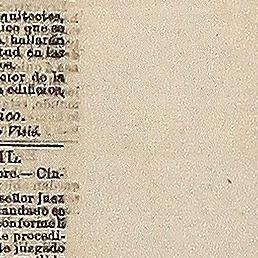 quitectos,
ico que se
hallarán
tud en las
os.
cior de la
edificios,
ico.
Visié.
IL
bre.—Cin-
señor juez
andado en
conforme á
e procedi-
e juzgado